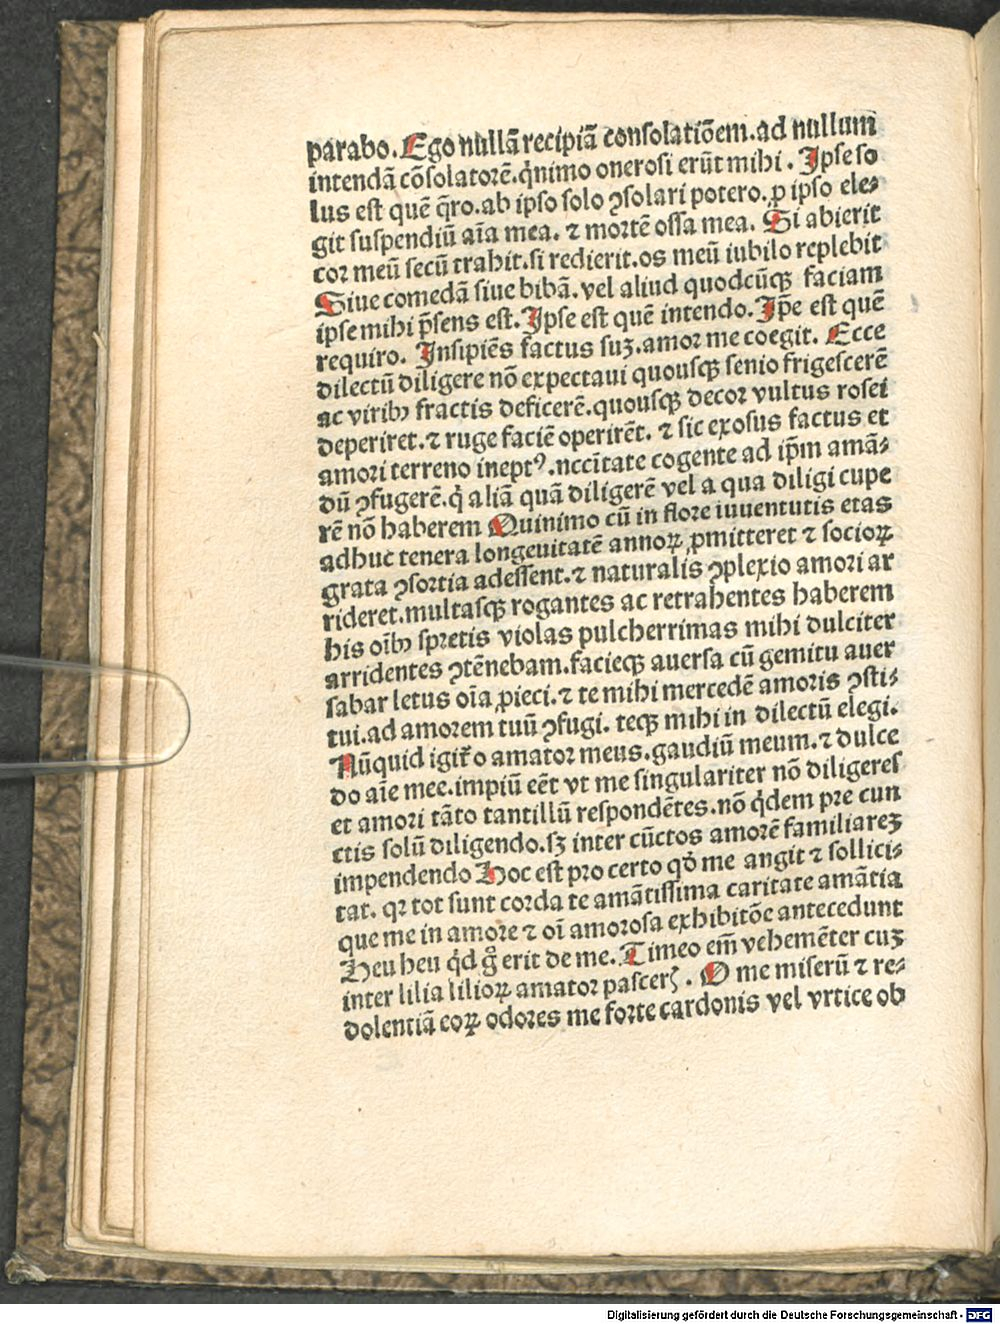 parabo. Ego nullã recipiã consolatiõem. ad nullum
intendã cõsolatorẽ. q̇nimo onerosi erũt mihi. Ipse so
lus est quẽ q̃ro. ab ipso solo ꝯsolari potero. ꝓ ipso ele⸗
git suspendiũ aĩa mea. ⁊ mortẽ ossa mea. Si abierit
cor meũ secũ trahit. si redierit. os meũ iubilo replebit
Siue comedã siue bibã. vel aliud quodcũqꝫ faciam
ipse mihi p̃sens est. Ipse est quẽ intendo. Ip̃e est quẽ
requiro. Insipiẽs factus suꝫ. amor me coegit. Ecce
dilectũ diligere nõ expectaui quousqꝫ senio frigescerẽ
ac viribꝫ fractis deficerẽ. quousqꝫ decor vultus rosei
deperiret. ⁊ ruge faciẽ operirẽt. ⁊ sic exosus factus et
amori terreno ineptꝰ. nccĩtate cogente ad ip̃m amã⸗
dũ ꝯfugerẽ. q̇ aliã quã diligerẽ vel a qua diligi cupe
rẽ nõ haberem Quinimo cũ in flore iuuentutis etas
adhuc tenera longeuitatẽ annoꝝ ꝓmitteret ⁊ socioꝝ
grata ꝯsortia adessent. ⁊ naturalis ꝯplexio amori ar
rideret. multasqꝫ rogantes ac retrahentes haberem
his oĩbꝫ spretis violas pulcherrimas mihi dulciter
arridentes ꝯtẽnebam. facieqꝫ auersa cũ gemitu auer
sabar letus oĩa ꝓieci. ⁊ te mihi mercedẽ amoris ꝯsti⸗
tui. ad amorem tuũ ꝯfugi. teqꝫ mihi in dilectũ elegi.
Nũquid igit̃ o amator meus. gaudiũ meum. ⁊ dulce
do aĩe mee. impiũ eẽt vt me singulariter nõ diligeres
et amori tãto tantillũ respondẽtes. nõ q̇dem pre cun
ctis solũ diligendo. sꝫ inter cũctos amorẽ familiareꝫ
impendendo Hoc est pro certo qḋ me angit ⁊ sollici⸗
tat. qꝛ tot sunt corda te amãtissima caritate amãtia
que me in amore ⁊ oĩ amorosa exhibitõe antecedunt
Heu heu q̇d g̊ erit de me. Timeo em̃ vehemẽter cuꝫ
inter lilia lilioꝝ amator pascerꝭ. O me miserũ ⁊ re⸗
dolentiã eoꝝ odores me forte cardonis vel vrtice ob
Digitalisierung gefördert durch die Deutsche Forschungsgemeinschaft - DFG